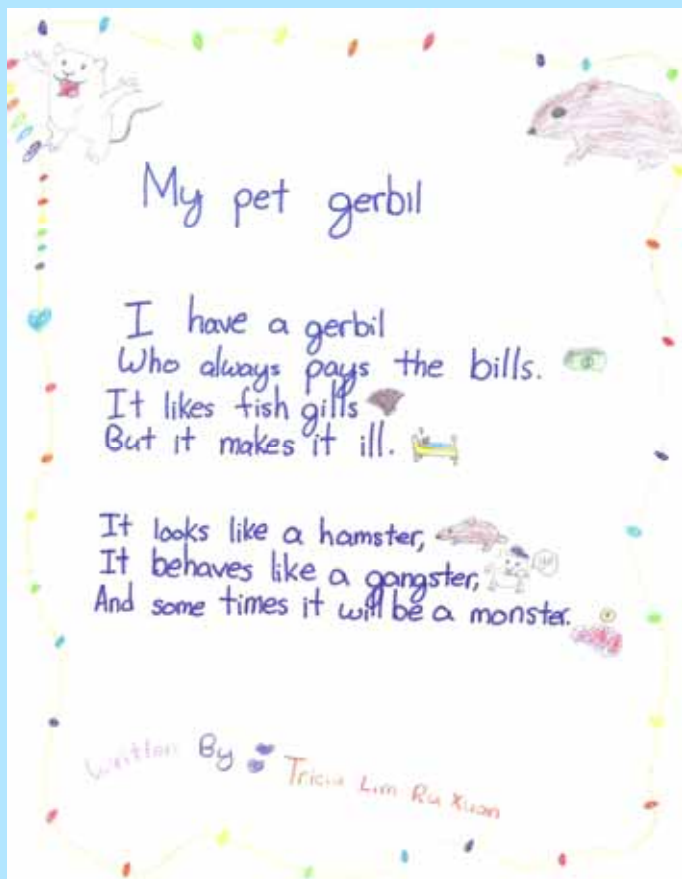 My pet gerbil
I have a gerbil
Who always pays the bills.
It likes fish gills
But it makes it ill.
It looks like a hamster,
It behaves like a gangster,
And some times it will be a monster.
Written By : Tricia Lim Ru Xuan